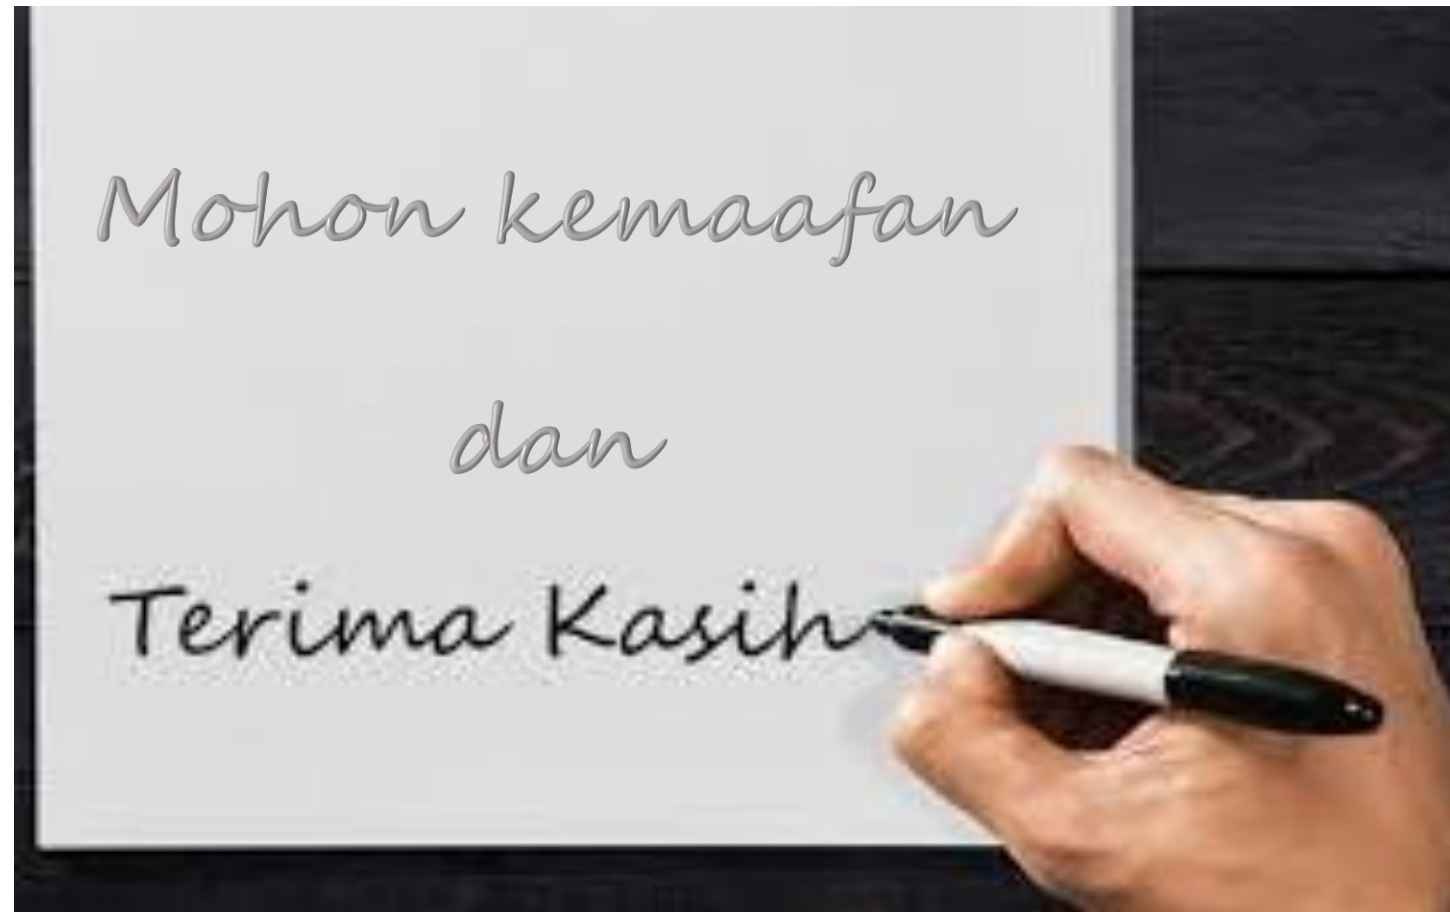 Mohon kemaafan
dan
Terima Kasih